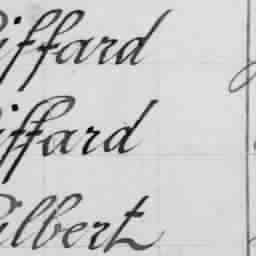 Giffard
Giffard
Gilbert